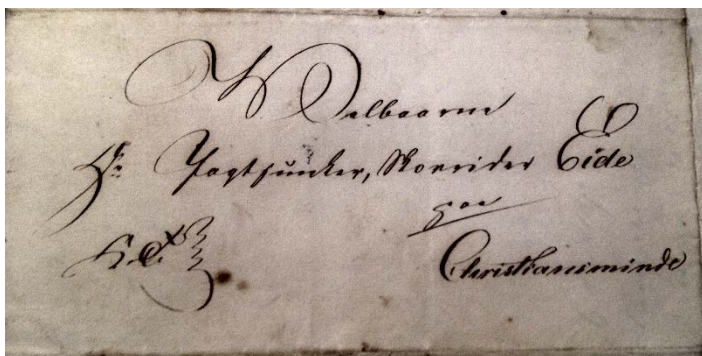 Velbaarne
Hr. Jagtjunker, Skovrider Eide
paa
Christiansminde